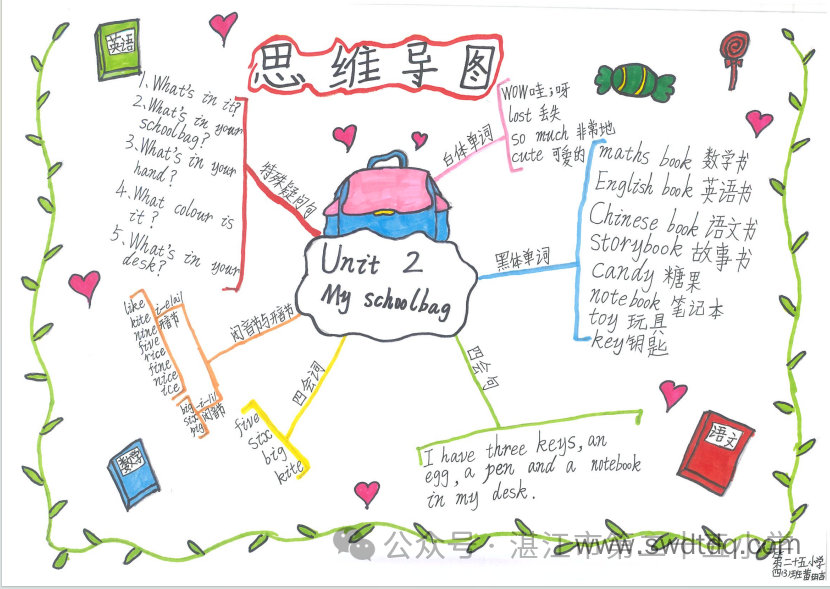 思维导图
英语
1、What's in it?
2、What's in your
schoolbag?
3、What's in your
hand?
4、What colour is
it?
5、What's in your
desk?
特殊疑问句
白体单词
WOW哇;呀
lost 丢失
so much 非常地
cute 可爱的
黑体单词
maths book 数学书
English book 英语书
Chinese book 语文书
storybook 故事书
candy 糖果
notebook 笔记本
toy 玩具
key钥匙
Unit 2
My schoolbag
闭音节与开音节
like
kite
nine
five
rice
fine
nice
ice
i-e/ai/
开音节
big
six
big
-i-/i/
闭音节
四会词
five
six
big
kite
四会句
I have three keys, an
egg, a pen and a notebook
in my desk.
数学
语文
公众号·湛江市第二十五小学
www.swdtdq.com
第二十五小学
四(3)班